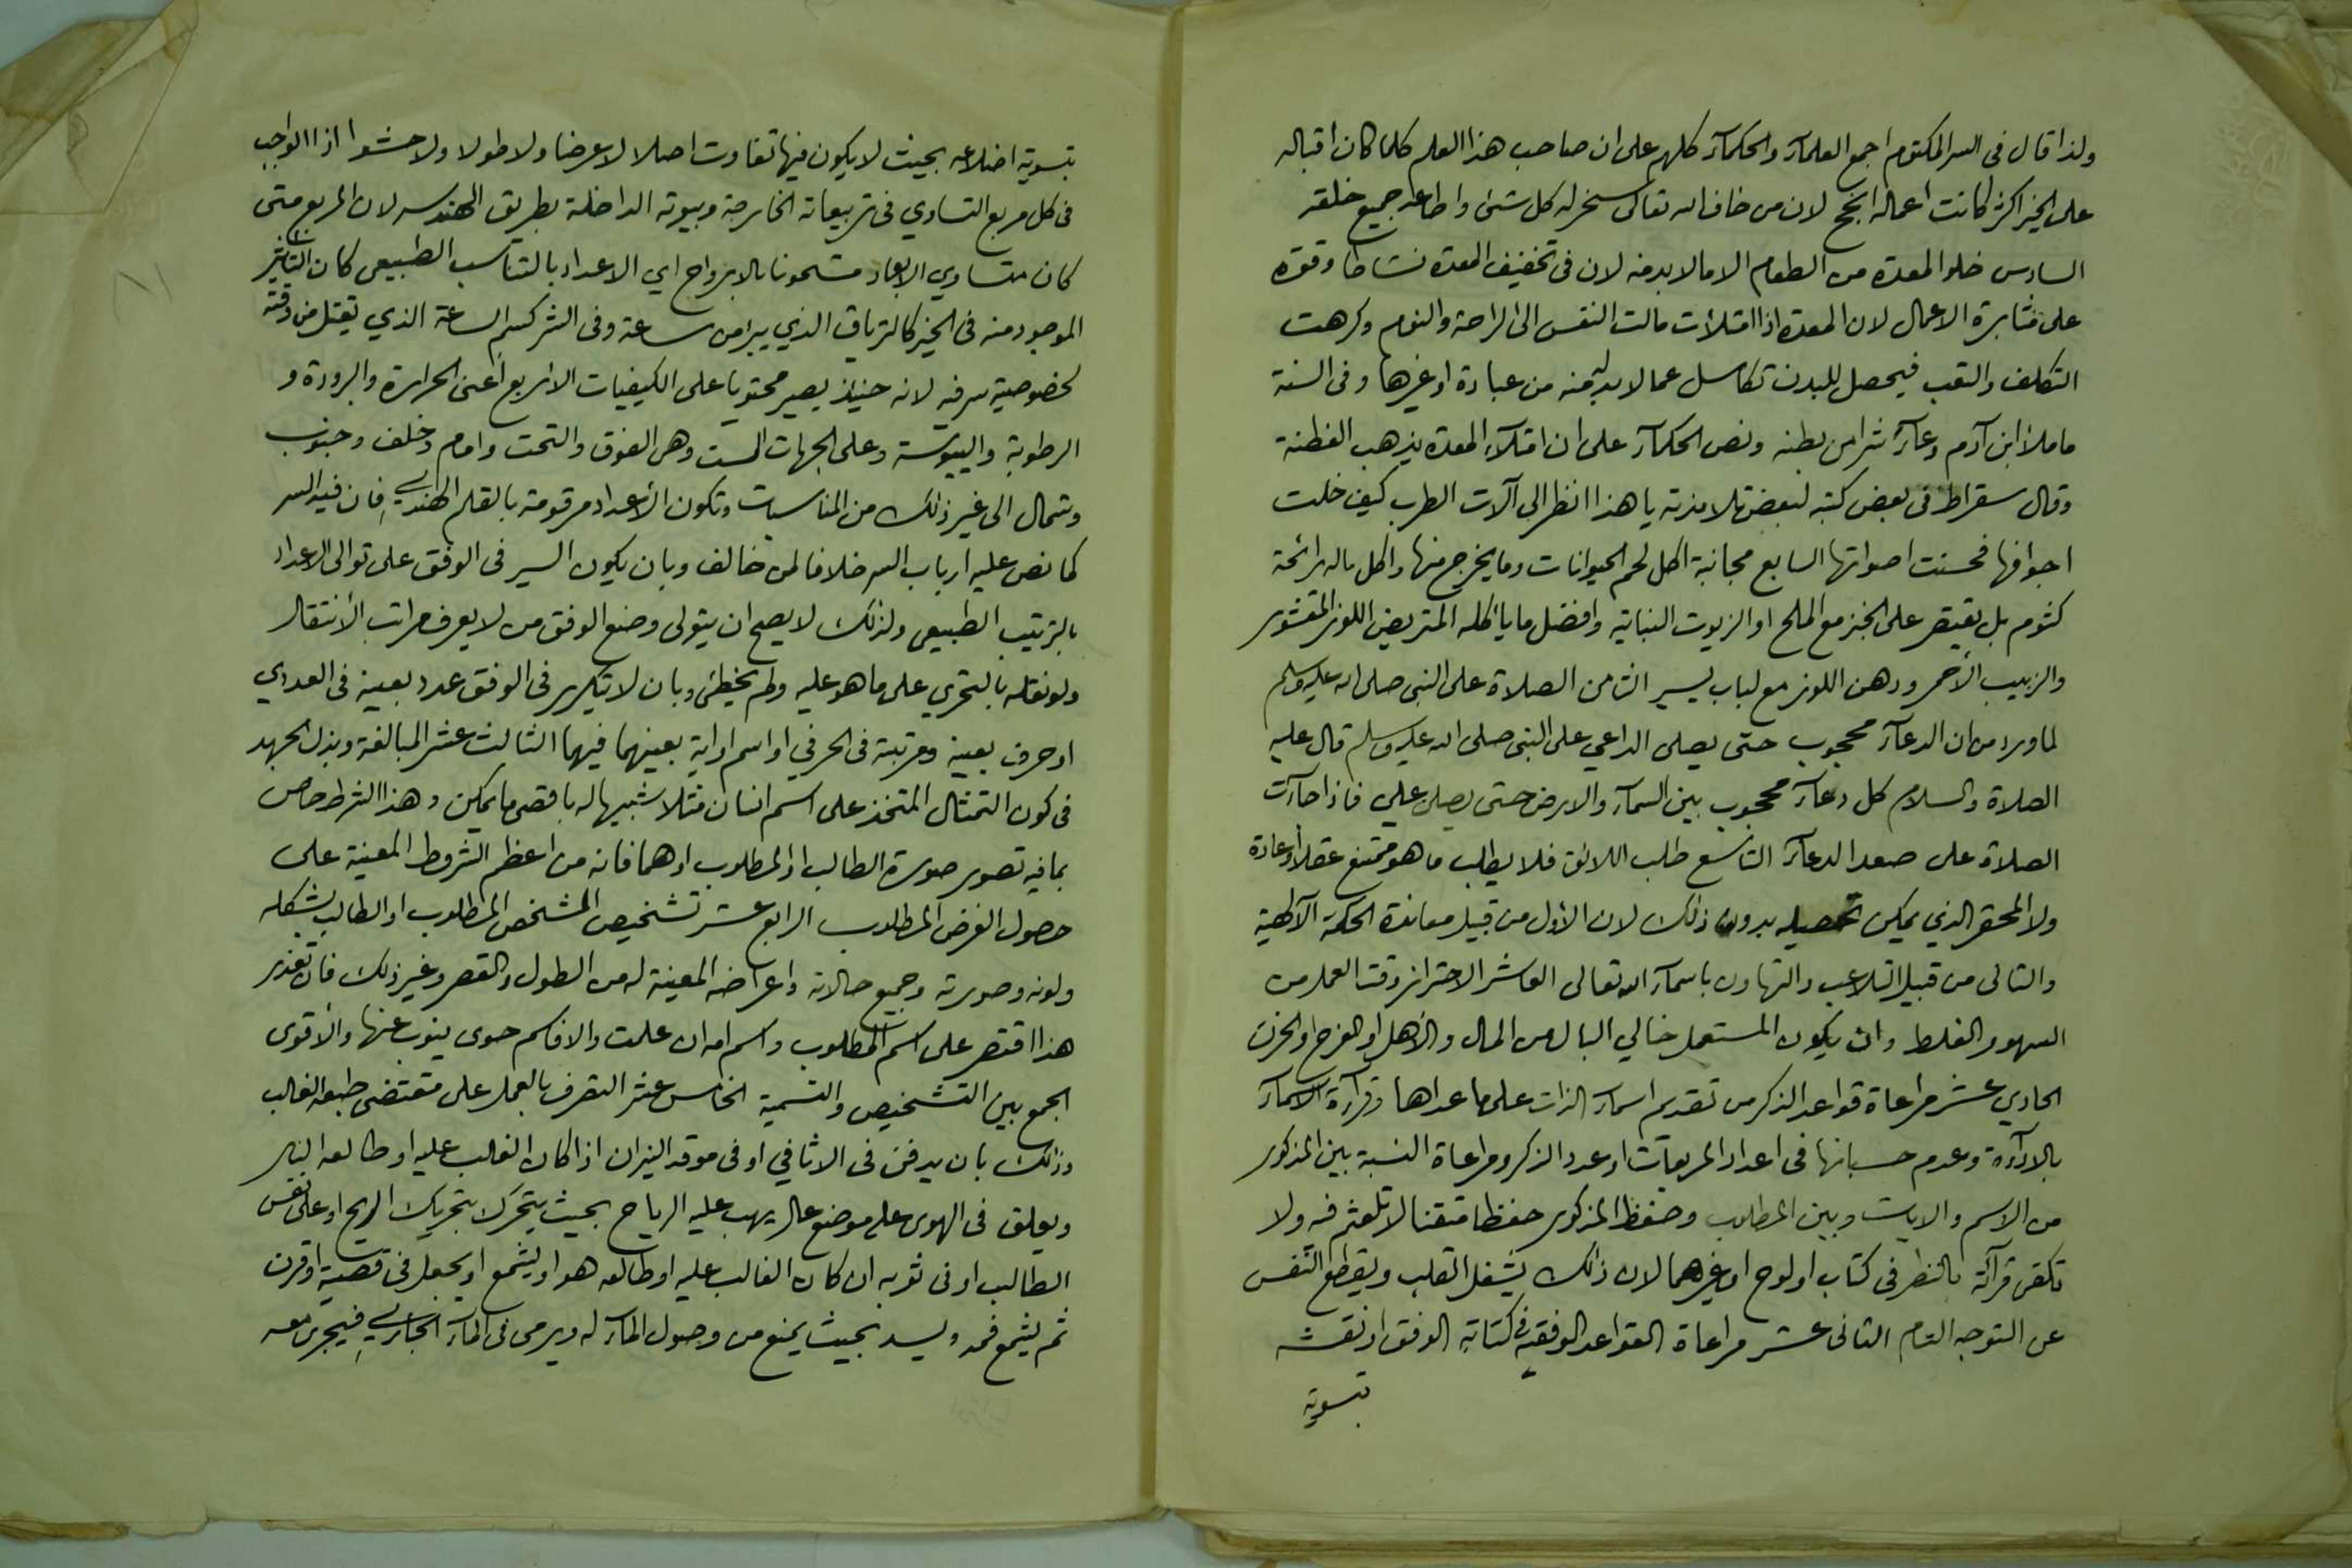 ولذا قال فى السر المكتوم اجمع العلمآء والحكمآء كلهم على ان صاحب هذا العلم كلما كان اقباله
على الخير اكثر كانت اعماله انجح لان من خاف الله تعالى سخر له كل شئ واطاعه جميع خلقه
السادس خلو المعدة من الطعام الا مالا بد منه لان فى تخفيف المعدة نشاطا وقوة
على مثابرة الاعمال لان المعدة اذا امتلأت مالت النفس الى الراحة والنوم وكرهت
التكلف والتعب فيحصل للبدن تكاسل عما لا بد منه من عبادة او غيرها وفى السنة
ما ملأ ابن آدم وعآء شرا من بطنه ونص الحكمآء على ان امتلآء المعدة يذهب الفطنة
وقال سقراط فى بعض كتبه لبعض تلامذته يا هذا انظر الى آلات الطرب كيف خلت
اجوافها فحسنت اصواتها السابع مجانبة اكل لحم الحيوانات وما يخرج منها واكل ماله رائحة
كثوم بل يقتصر على الخبز مع الملح او الزيوت النباتية وافضل ما يأكله المتريض اللوز المقشور
والزبيب الأحمر ودهن اللوز مع لباب يسير الثامن الصلاة على النبى صلى الله عليه وسلم
لما ورد من ان الدعآء محجوب حتى يصلى الداعي على النبى صلى الله عليه وسلم قال عليه
الصلاة والسلام كل دعآء محجوب بين السمآء والارض حتى يصلى علي فاذا جآءت
الصلاة على صعد الدعآء التاسع طلب اللائق فلا يطلب ما هو ممتنع عقلا او عادة
ولا المحقر الذي يمكن تحصيله بدون ذلك لان الأول من قبيل معاندة الحكمة الآلهية
والثانى من قبيل التلاعب والتهاون باسمآء الله تعالى العاشر الاحتراز وقت العمل من
السهو والغلط وان يكون المستعمل خالي البال من المال والأهل او الفرح او الحزن
الحادي عشر مراعاة قواعد الذكر من تقديم اسمآء الذات على ما عداها وقرآءة الاسمآء
بالادآة وعدم حسبانها فى اعداد المربعات او عدد الذكر ومراعاة النسبة بين المذكور
من الاسم والايات وبين المطلوب وحفظ المذكور حفظا متقنا لا تلعثم فيه ولا
تكفى قرآئة بالنظر فى كتاب او لوح او غيرهما لان ذلك يشغل القلب ويقطع النفس
عن التوجه التام الثانى عشر مراعاة القواعد الوفقية فى كتابة الوفق او نقشه
بتسوية
بتسوية اضلاعه بحيث لا يكون فيها تفاوت اصلا لا عرضا ولا طولا ولا حشوا اذا الواجب
فى كل مربع التساوي فى تربيعاته الخارجة وبيوته الداخلة بطريق الهندسه لان المربع متى
كان متساوي الابعاد مشحونا بالابرواج اي الاعداد بالتناسب الطبيعى كان التأثير
الموجود منه فى الخير كالترياق الذي يبرا من ساعة وفى الشر كسم الساعة الذي يقتل من وقته
لخصوصية سرفيه لانه حينئذ يصير محتويا على الكيفيات الاربع أعنى الحرارة والبرودة و
الرطوبة واليبوسة وعلى الجهات الست وهى الفوق والتحت وامام وخلف وجنوب
وشمال الى غير ذلك من المناسبات وتكون الأعداد مرقومة بالقلم الهندي فان فيه السر
كما نص عليه ارباب السر خلافا لمن خالف وبان يكون السير فى الوفق على توالى الاعداد
بالترتيب الطبيعى ولذلك لا يصح ان يتولى وضع الوفق من لا يعرف مراتب الأنتقال
ولو نقله بالتحري على ما هو عليه ولم يخطئ وبان لا تكرر فى الوفق عدد بعينه فى العددي
او حرف بعينه ومرتبة فى الحرفي او اسم او اية بعينهما فيهما الثالث عشر المبالغة وبذل الجهد
فى كون التمثال المتخذ على اسم انسان مثلا شبيها له باقصى ما يمكن وهذا الشرط خاص
بما فيه تصوير صورة الطالب او المطلوب او هما فانه من اعظم الشروط المعينة على
حصول الغرض المطلوب الرابع عشر تشخيص الشخص المطلوب او الطالب بشكله
ولونه وصورته وجميع حالاته واعراضه المعينة له من الطول والقصر وغير ذلك فان تعذر
هذا اقتصر على اسم المطلوب واسم امه ان علمت والا فاسم حوى ينوب عنها والأقوى
الجمع بين التشخيص والتسمية الخامس عشر التصرف بالعمل على مقتضى طبعه الغالب
وذلك بان يدفن فى الاثافي او فى موقد النيران اذا كان الغالب عليه او طالعه النار
ويعلق فى الهوى على موضع عال يهب عليه الرياح بحيث يتحرك بتحريك الريح او على نفس
الطالب او فى ثوبه ان كان الغالب عليه او طالعه هوا او يشمع او يجعل فى قصبة او قرن
ثم يشمع فمه ويسد بحيث يمنع من وصول المآء له ويرمى فى المآء الجاري فيجرى معه